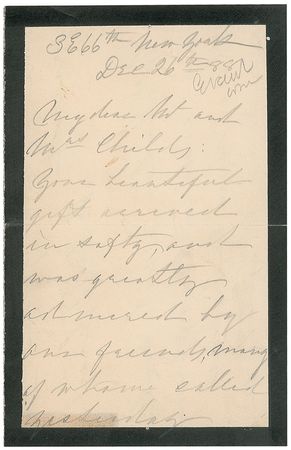 3 E 66th New York
Dec 26th
My dear Mr and
Mrs Childs:
Your beautiful
gift arrived
in safty, and
was greatly
admired by
our friends, many
of whome called
yesterday